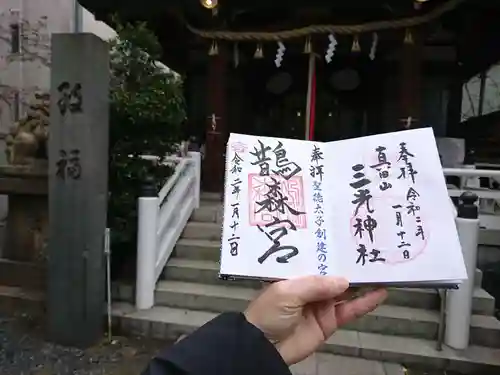 福
奉拝 令和二年
一月十二日
真田山
三光神社
奉拝 聖徳太子創建の宮
鵲森宮
令和二年一月十二日